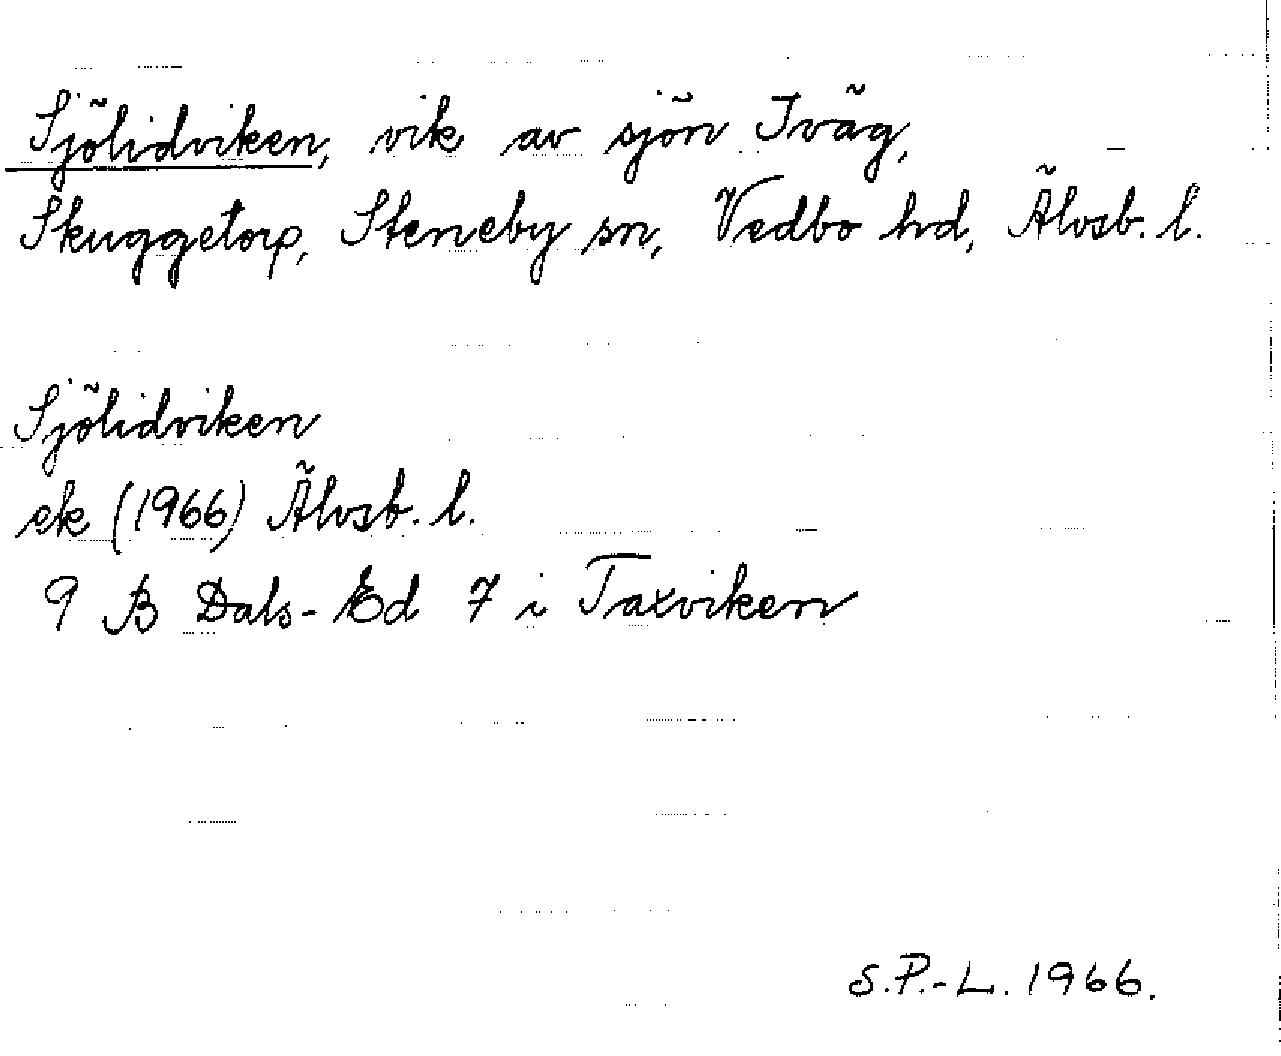 Sjölidviken, vik av sjön Iväg,
Skuggetorp, Steneby sn, Vedbo hd, Älvsb. l.
Sjölidviken
ek (1966) Älvsb. l.
9 B Dals-Ed 7 i Taxviken
S.P.-L. 1966.